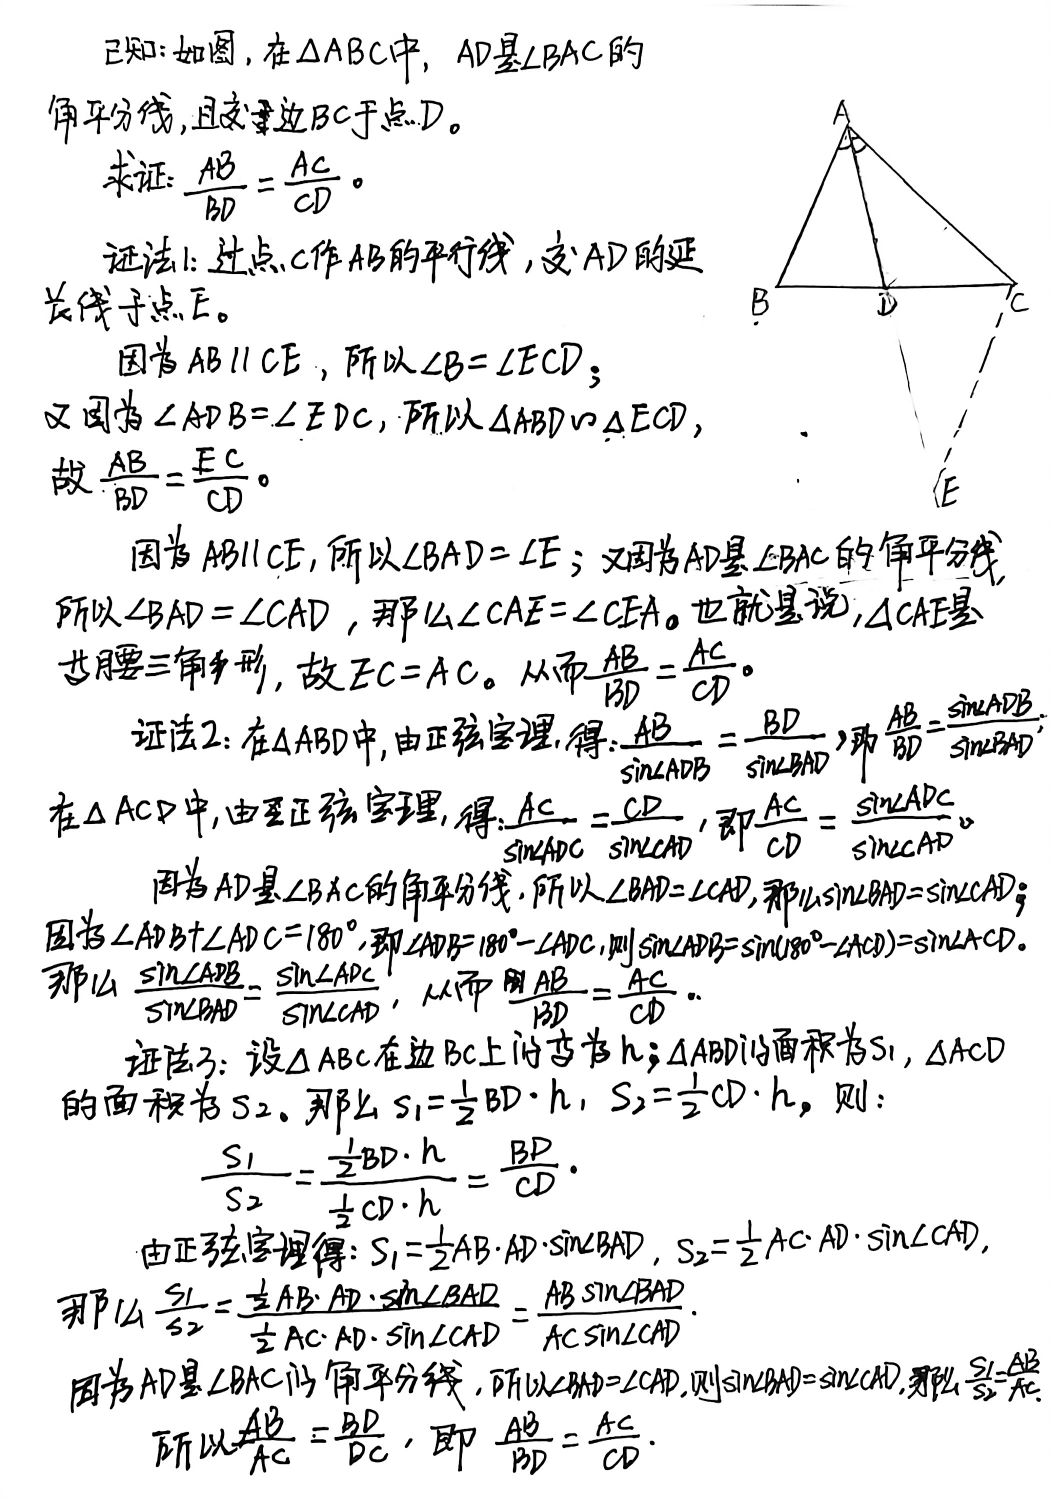 已知:如图,在△ABC中, AD是∠BAC的
角平分线,且交边BC于点D。
求证: AB/BD = AC/CD 。
证法1: 过点C作AB的平行线,交AD的延
长线于点E。
因为AB∥CE,所以∠B=∠ECD;
又因为∠ADB=∠EDC,所以△ABD∽△ECD,
故 AB/BD = EC/CD 。
因为AB∥CE,所以∠BAD=∠E;又因为AD是∠BAC的角平分线,
所以∠BAD=∠CAD,那么∠CAE=∠CEA。也就是说,△CAE是
等腰三角形,故EC=AC。从而 AB/BD = AC/CD 。
证法2:在△ABD中,由正弦定理,得: AB/sin∠ADB = BD/sin∠BAD ,即 AB/BD = sin∠ADB/sin∠BAD ;
在△ACD中,由正弦定理,得: AC/sin∠ADC = CD/sin∠CAD ,即 AC/CD = sin∠ADC/sin∠CAD 。
因为AD是∠BAC的角平分线,所以∠BAD=∠CAD,那么sin∠BAD=sin∠CAD;
因为∠ADB+∠ADC=180°,即∠ADB=180°-∠ADC,则sin∠ADB=sin(180°-∠ACD)=sin∠ACD.
那么 sin∠ADB/sin∠BAD = sin∠ADC/sin∠CAD ,从而 AB/BD = AC/CD .
证法3:设△ABC在边BC上的高为h;△ABD的面积为S1,△ACD
的面积为S2。那么 S1=1/2 BD·h, S2=1/2 CD·h。则:
S1/S2 = (1/2 BD·h)/(1/2 CD·h) = BD/CD .
由正弦定理得: S1=1/2 AB·AD·sin∠BAD, S2=1/2 AC·AD·sin∠CAD,
那么 S1/S2 = (1/2 AB·AD·sin∠BAD)/(1/2 AC·AD·sin∠CAD) = AB sin∠BAD/AC sin∠CAD .
因为AD是∠BAC的角平分线,所以∠BAD=∠CAD,则sin∠BAD=sin∠CAD,那么 S1/S2 = AB/AC.
所以 AB/AC = BD/DC ,即 AB/BD = AC/CD .
A
B
D
C
E